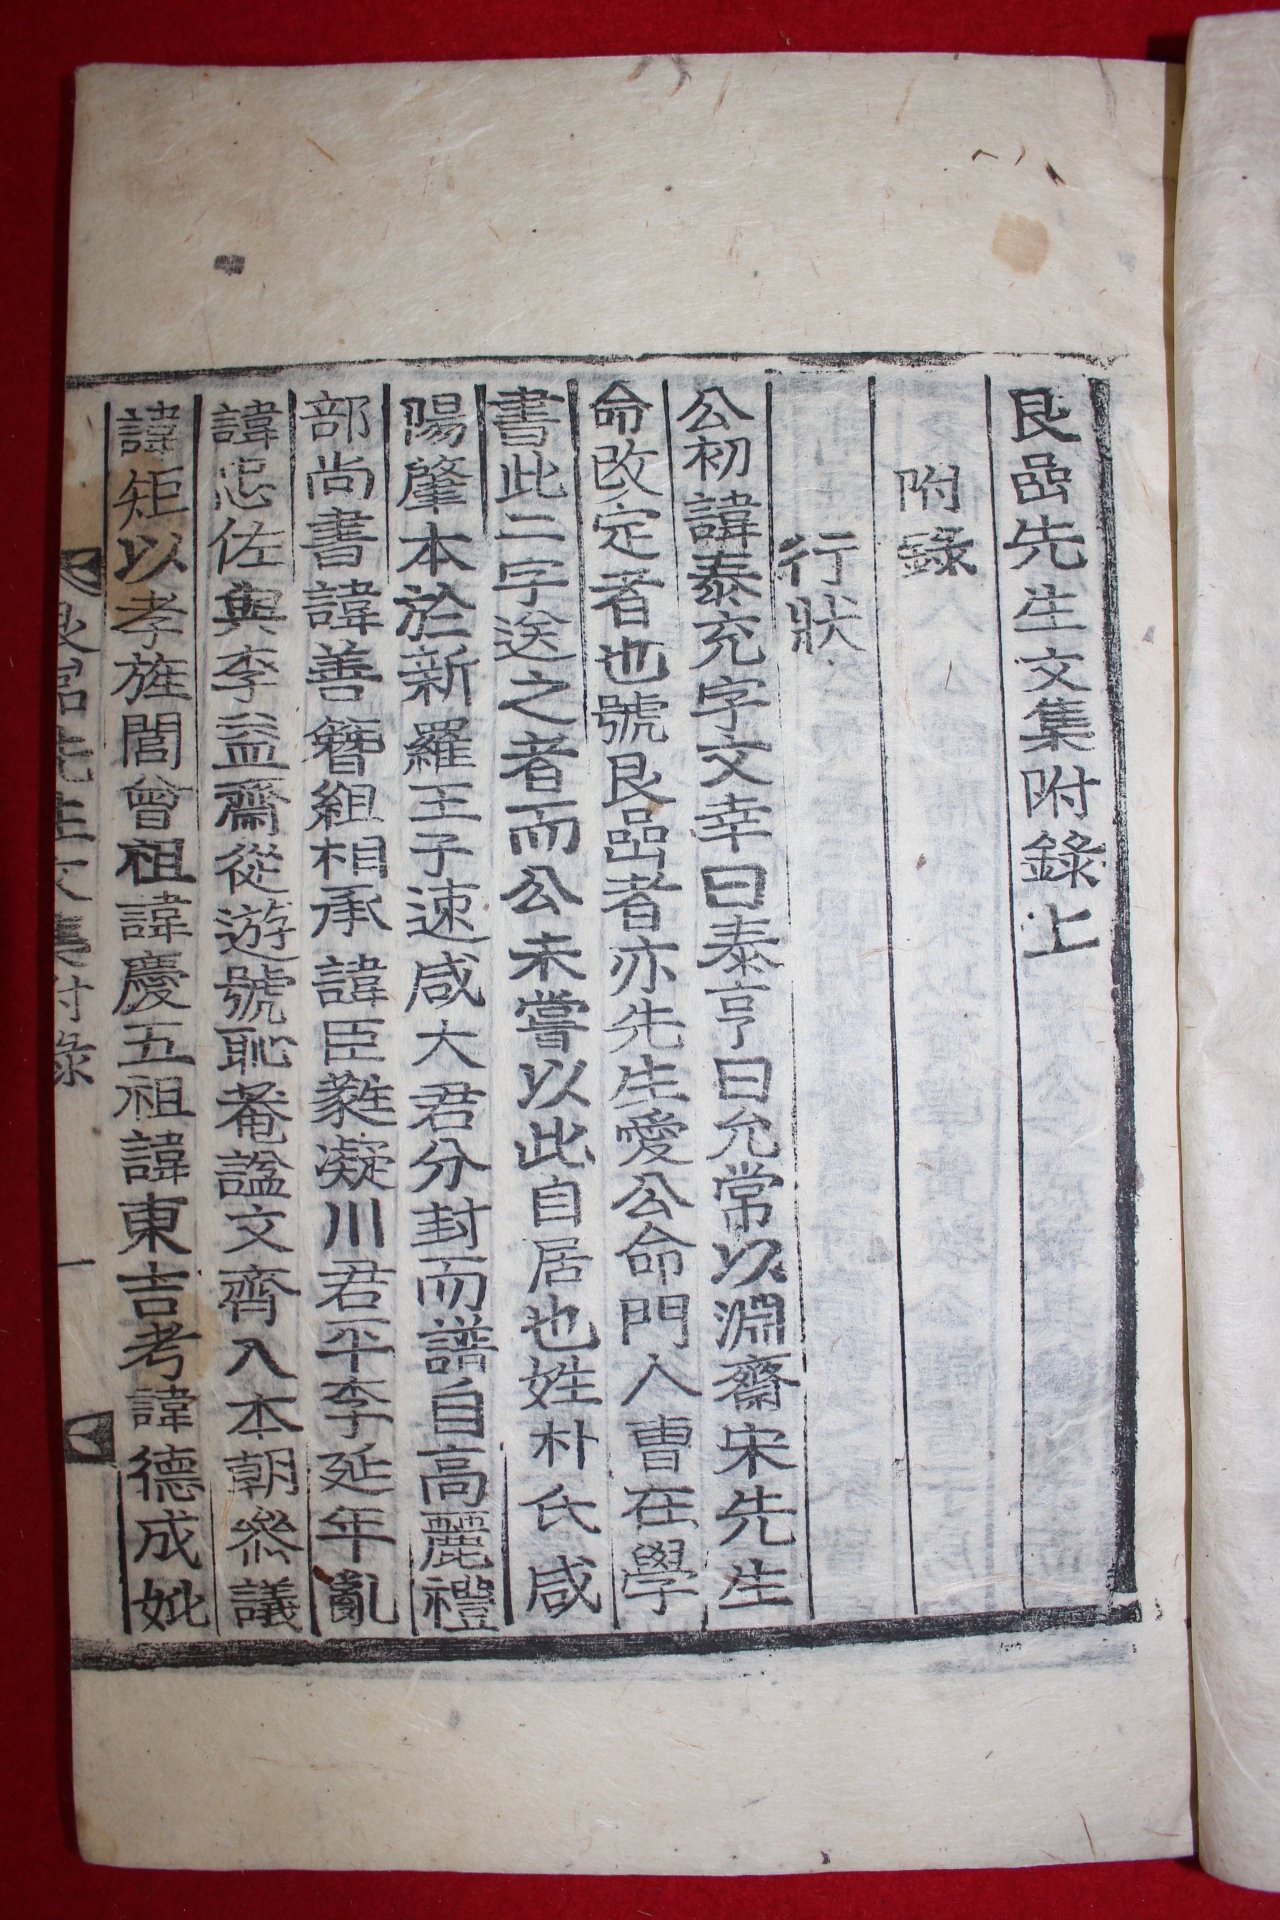 艮嵒先生文集附錄上
附錄
行狀
公初諱泰充字文幸曰泰亨曰允常以淵齋宋先生
命改定者也號艮嵒者亦先生愛公命門入曺在學
書此二字送之者而公未嘗以此自居也姓朴氏咸
陽肇本於新羅王子速咸大君分封而譜自高麗禮
部尚書諱善簪組相承諱臣蕤凝川君平李延年亂
諱忠佐與李益齋從遊號恥菴諡文齊入本朝參議
諱矩以孝旌閭曾祖諱慶五祖諱東吉考諱德成妣
艮嵒先生文集附錄
一